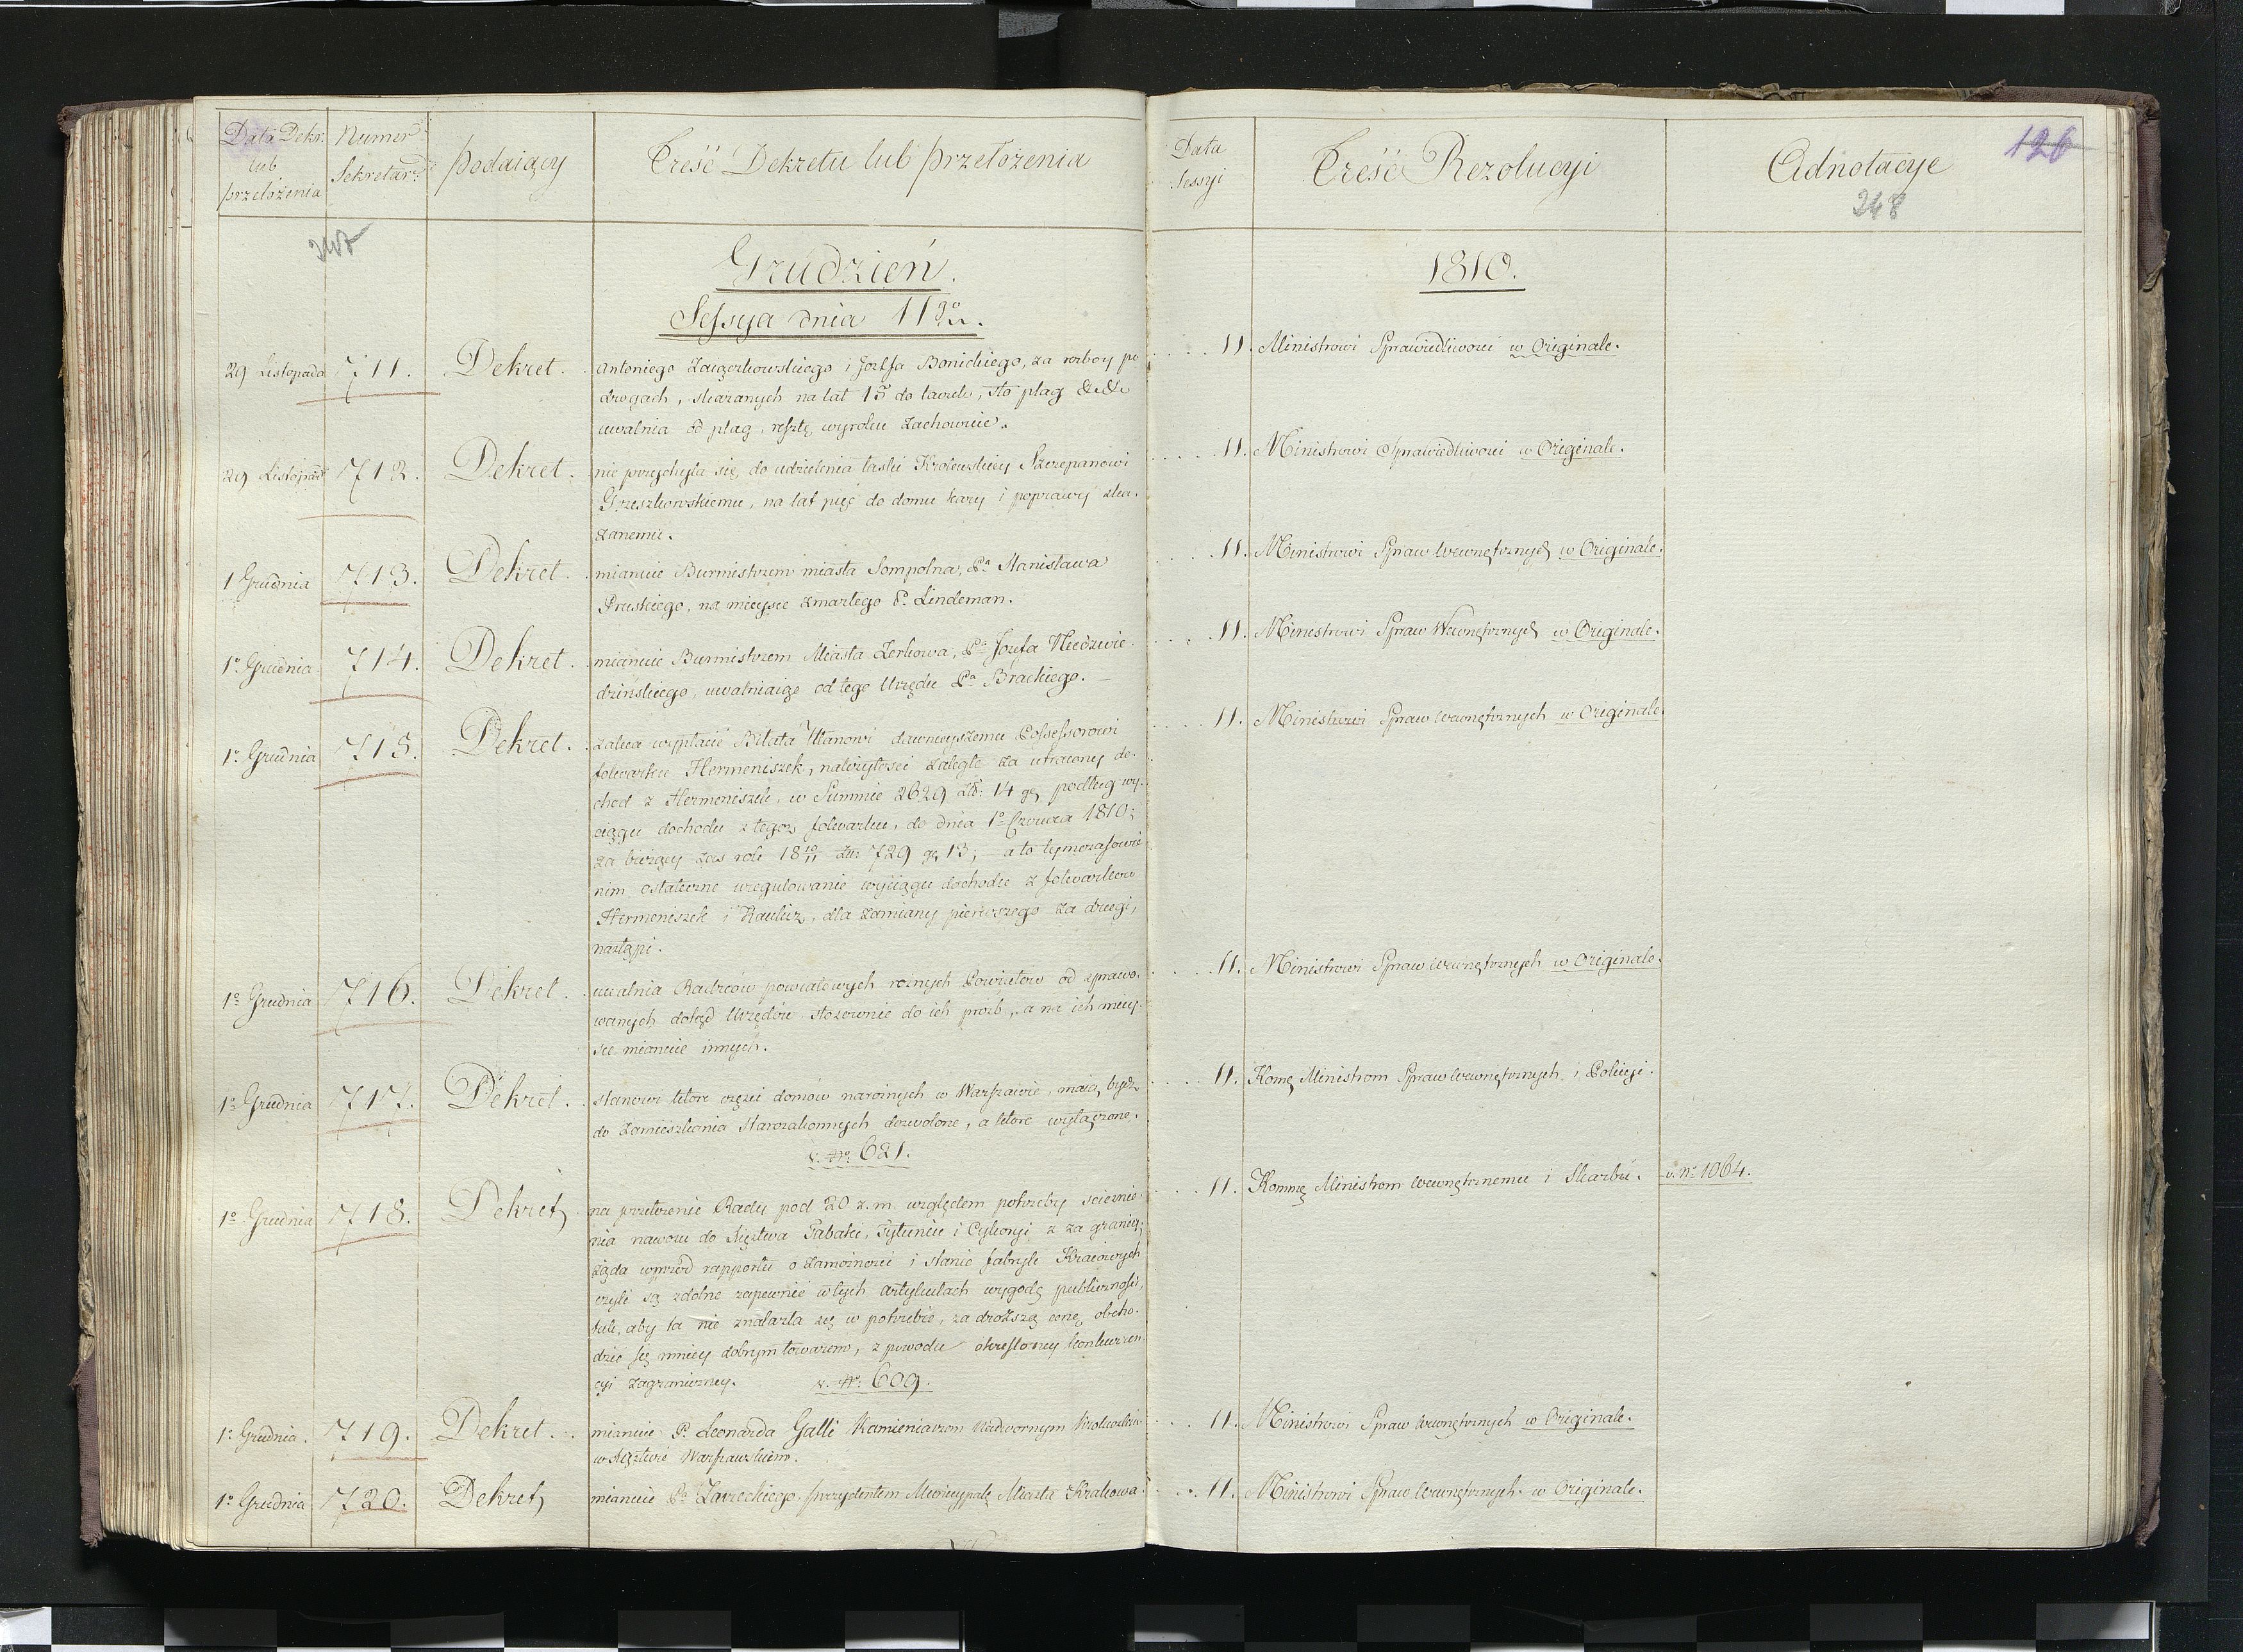 Data Dekr. lub przełożenia
Numer Sekretar:
Podaiący
Treść Dekretu lub przełożenia
Data Sessyi
Treść Rezolucyi
Adnotacye
126
248
Grudzień.
1810.
Sessya dnia 11go
29 Listopada 711. Dekret. Antoniego i Jozefa Bonickiego, za rozboy po
drogach, skazanych na lat 15 do taczek, sto plag &c. &c.
uwalnia od plag, resztę wyroku zachowuie.
11. Ministrowi Sprawiedliwości w Originale.
29 Listopada 712. Dekret. nie przychyla się do udzielenia łaski Krolewskiey Szczepanowi
Grzeszkowskiemu, na lat pięć do domu kary i poprawy ska-
zanemu.
11. Ministrowi Sprawiedliwości w Originale.
1 Grudnia 713. Dekret. mianuie Burmistrzem miasta Sompolna, Pa Stanisława
Pruskiego, na mieysce zmarłego P. Lindeman.
11. Ministrowi Spraw Wewnętrznych w Originale.
1o Grudnia 714. Dekret. mianuie Burmistrzem Miasta Zerkowa, Pa Jozefa Niedzwie-
dzińskiego, uwalniaiąc od tego Urzędu Pa Brackiego.
11. Ministrowi Spraw Wewnętrznych w Originale.
1o Grudnia 715. Dekret. zaleca wypłacić Bilata Ułanowi dawnieyszemu Possessorowi
folwarku Hermeniszek, należytości zaległe za utracony do-
chod z Hermeniszek, w Summie 2629 Zł: 14 gr, podług wy-
ciągu dochodu z tegoz folwarku, do dnia 1o Czerwca 1810;
za bieżący zaś rok 18 10/11 Zł: 729 gr 13; – a to tymczasowie
nim ostateczne uregulowanie wyciągu dochodu z folwarkow
Hermeniszek i Kaulisz, dla zamiany pierwszego za drugi,
nastąpi.
11. Ministrowi Spraw Wewnętrznych w Originale
1o Grudnia 716. Dekret. uwalnia Radzców powiatowych rożnych Powiatow od sprawo-
wanych dotąd Urzędów stosownie do ich proźb, a na ich miey-
sce mianuie innych.
11. Ministrowi Spraw Wewnętrznych w Originale.
1o Grudnia 717. Dekret. stanowi ktore części domów narożnych w Warszawie, maią bydź
do zamieszkania Starozakonnych dozwolone, a ktore wyłączone.
v. No 621.
11. Komę Ministrom Spraw Wewnętrznych i Policyi.
1o Grudnia 718. Dekret, na przełożenie Rady pod 20 z. m. względem potrzeby ścieśnie-
nia nawozu do Xięstwa Tabaki, Tytuniu i Cykoryi z za granicy;
żąda wprzód rapportu o zamożności i stanie fabryk Kraiowych
czyli są zdolne zapewnić w tych artykułach wygodę publiczności,
tak, aby ta nie znalazła się w potrzebie, za droższą cenę obcho-
dzić się mniey dobrym towarem, z powodu określoney konkurren-
cyi zagraniczney. v. No 609.
11. Kommę Ministrom Wewnętrznemu i Skarbu. v. No 1064.
1o Grudnia. 719. Dekret. mianuie P. Leonarda Galli Kamieniarzem Nadwornym Krolewskim
w Xięstwie Warszawskiem.
11. Ministrowi Spraw Wewnętrznych w Originale.
1o Grudnia 720. Dekret, mianuie Pa Zarzeckiego prezydentem Municypalę Miasta Krakowa.
11. Ministrowi Spraw Wewnętrznych w Originale.